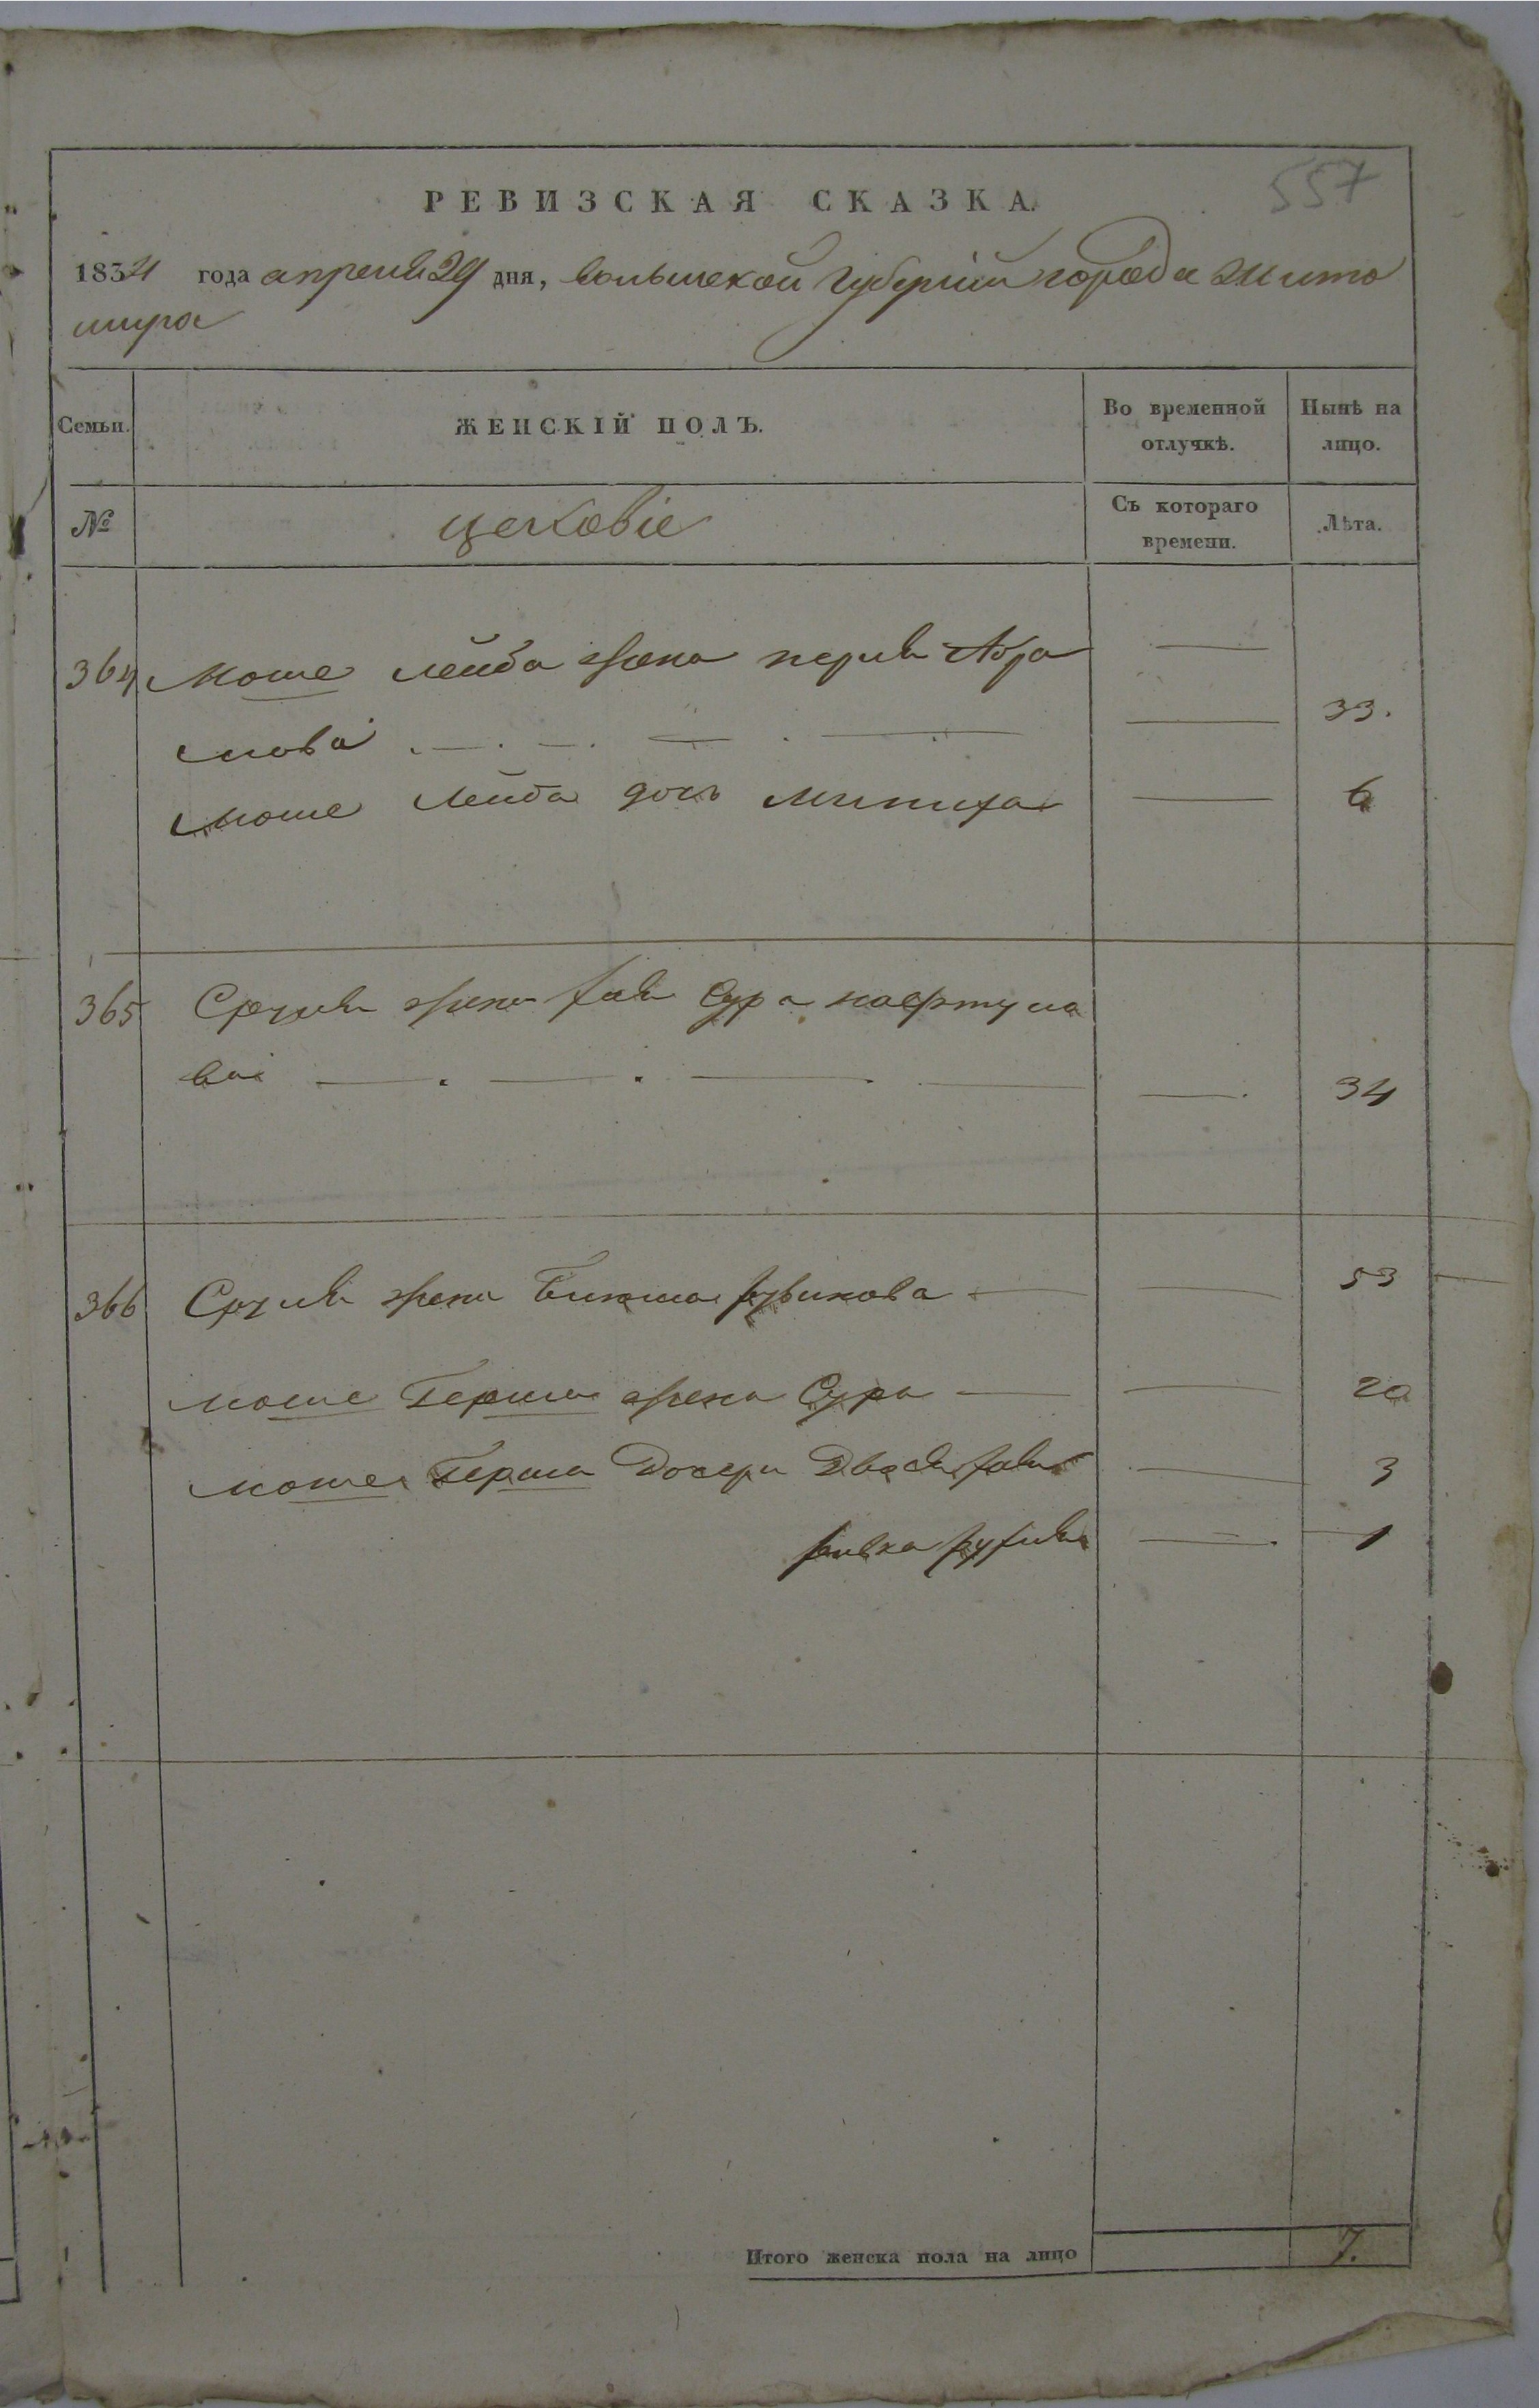 557
РЕВИЗСКАЯ СКАЗКА.
1834 года апреля 29 дня, волынской губернии города Жито
мира
Семьи. ЖЕНСКІЙ ПОЛЪ. Во временной отлучкѣ. Нынѣ на лицо.
№ Съ котораго времени. Лѣта.
364 Моше лейба жена перля Абра
мова 33.
Моше Лейба дочь 6
365 жена Сура нафтула
ва 34
366 жена 53
моше Герша жена Сура 20
моше Герша дочери Двося 3
ривка рухля 1
Итого женска пола на лицо 7.